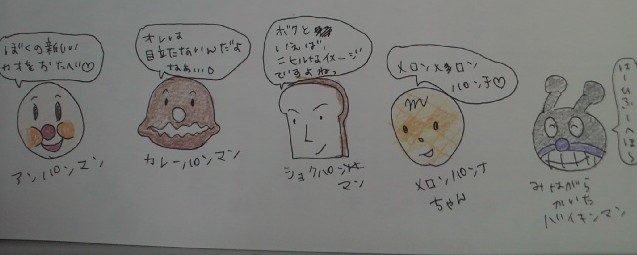 ぼくの新しい
カオをおたべ♡
アンパンマン
オレは
目立たないんだよ
なぁ…。
カレーパンマン
ボクと
いえば、
ニヒルなイメージ
ですよねっ
ショクパン
マン
メロンメロン
パンチ♡
メロンパンナ
ちゃん
はーひふーへほー
みながら
かいた
バイキンマン